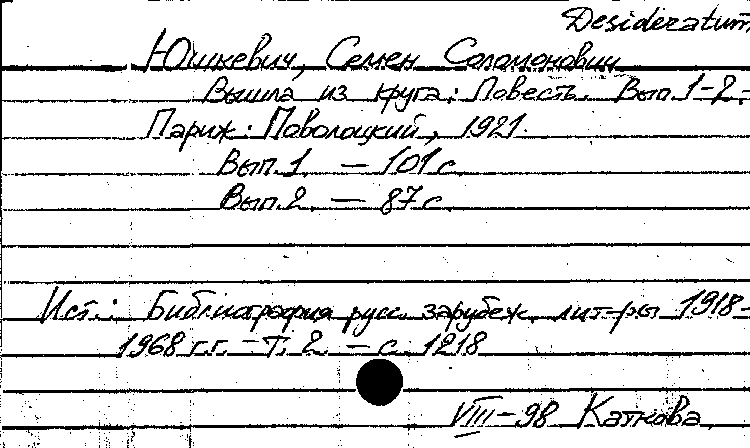 Desideratum
Юшкевич, Семен Соломонович
Вышла из круга: Повесть. Вып. 1-2.-
Париж: Поволоцкий, 1921.
Вып. 1. — 101 с.
Вып. 2. — 87 с.
Ист.: Библиография русс. зарубеж. лит-ры 1918-
1968 г.г. - Т. 2. - с. 1218
VIII-98 Каткова